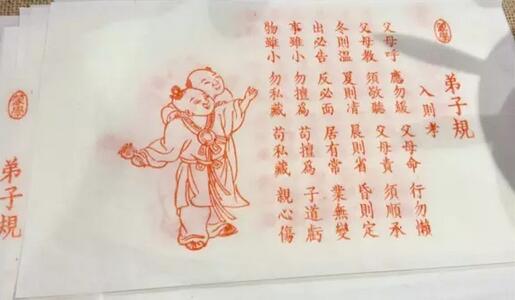 弟子規
入則孝
父母呼 應勿緩 父母命 行勿懶
父母教 須敬聽 父母責 須順承
冬則溫 夏則清 晨則省 昏則定
出必告 反必面 居有常 業無變
事雖小 勿擅為 苟擅為 子道虧
物雖小 勿私藏 苟私藏 親心傷
弟子規